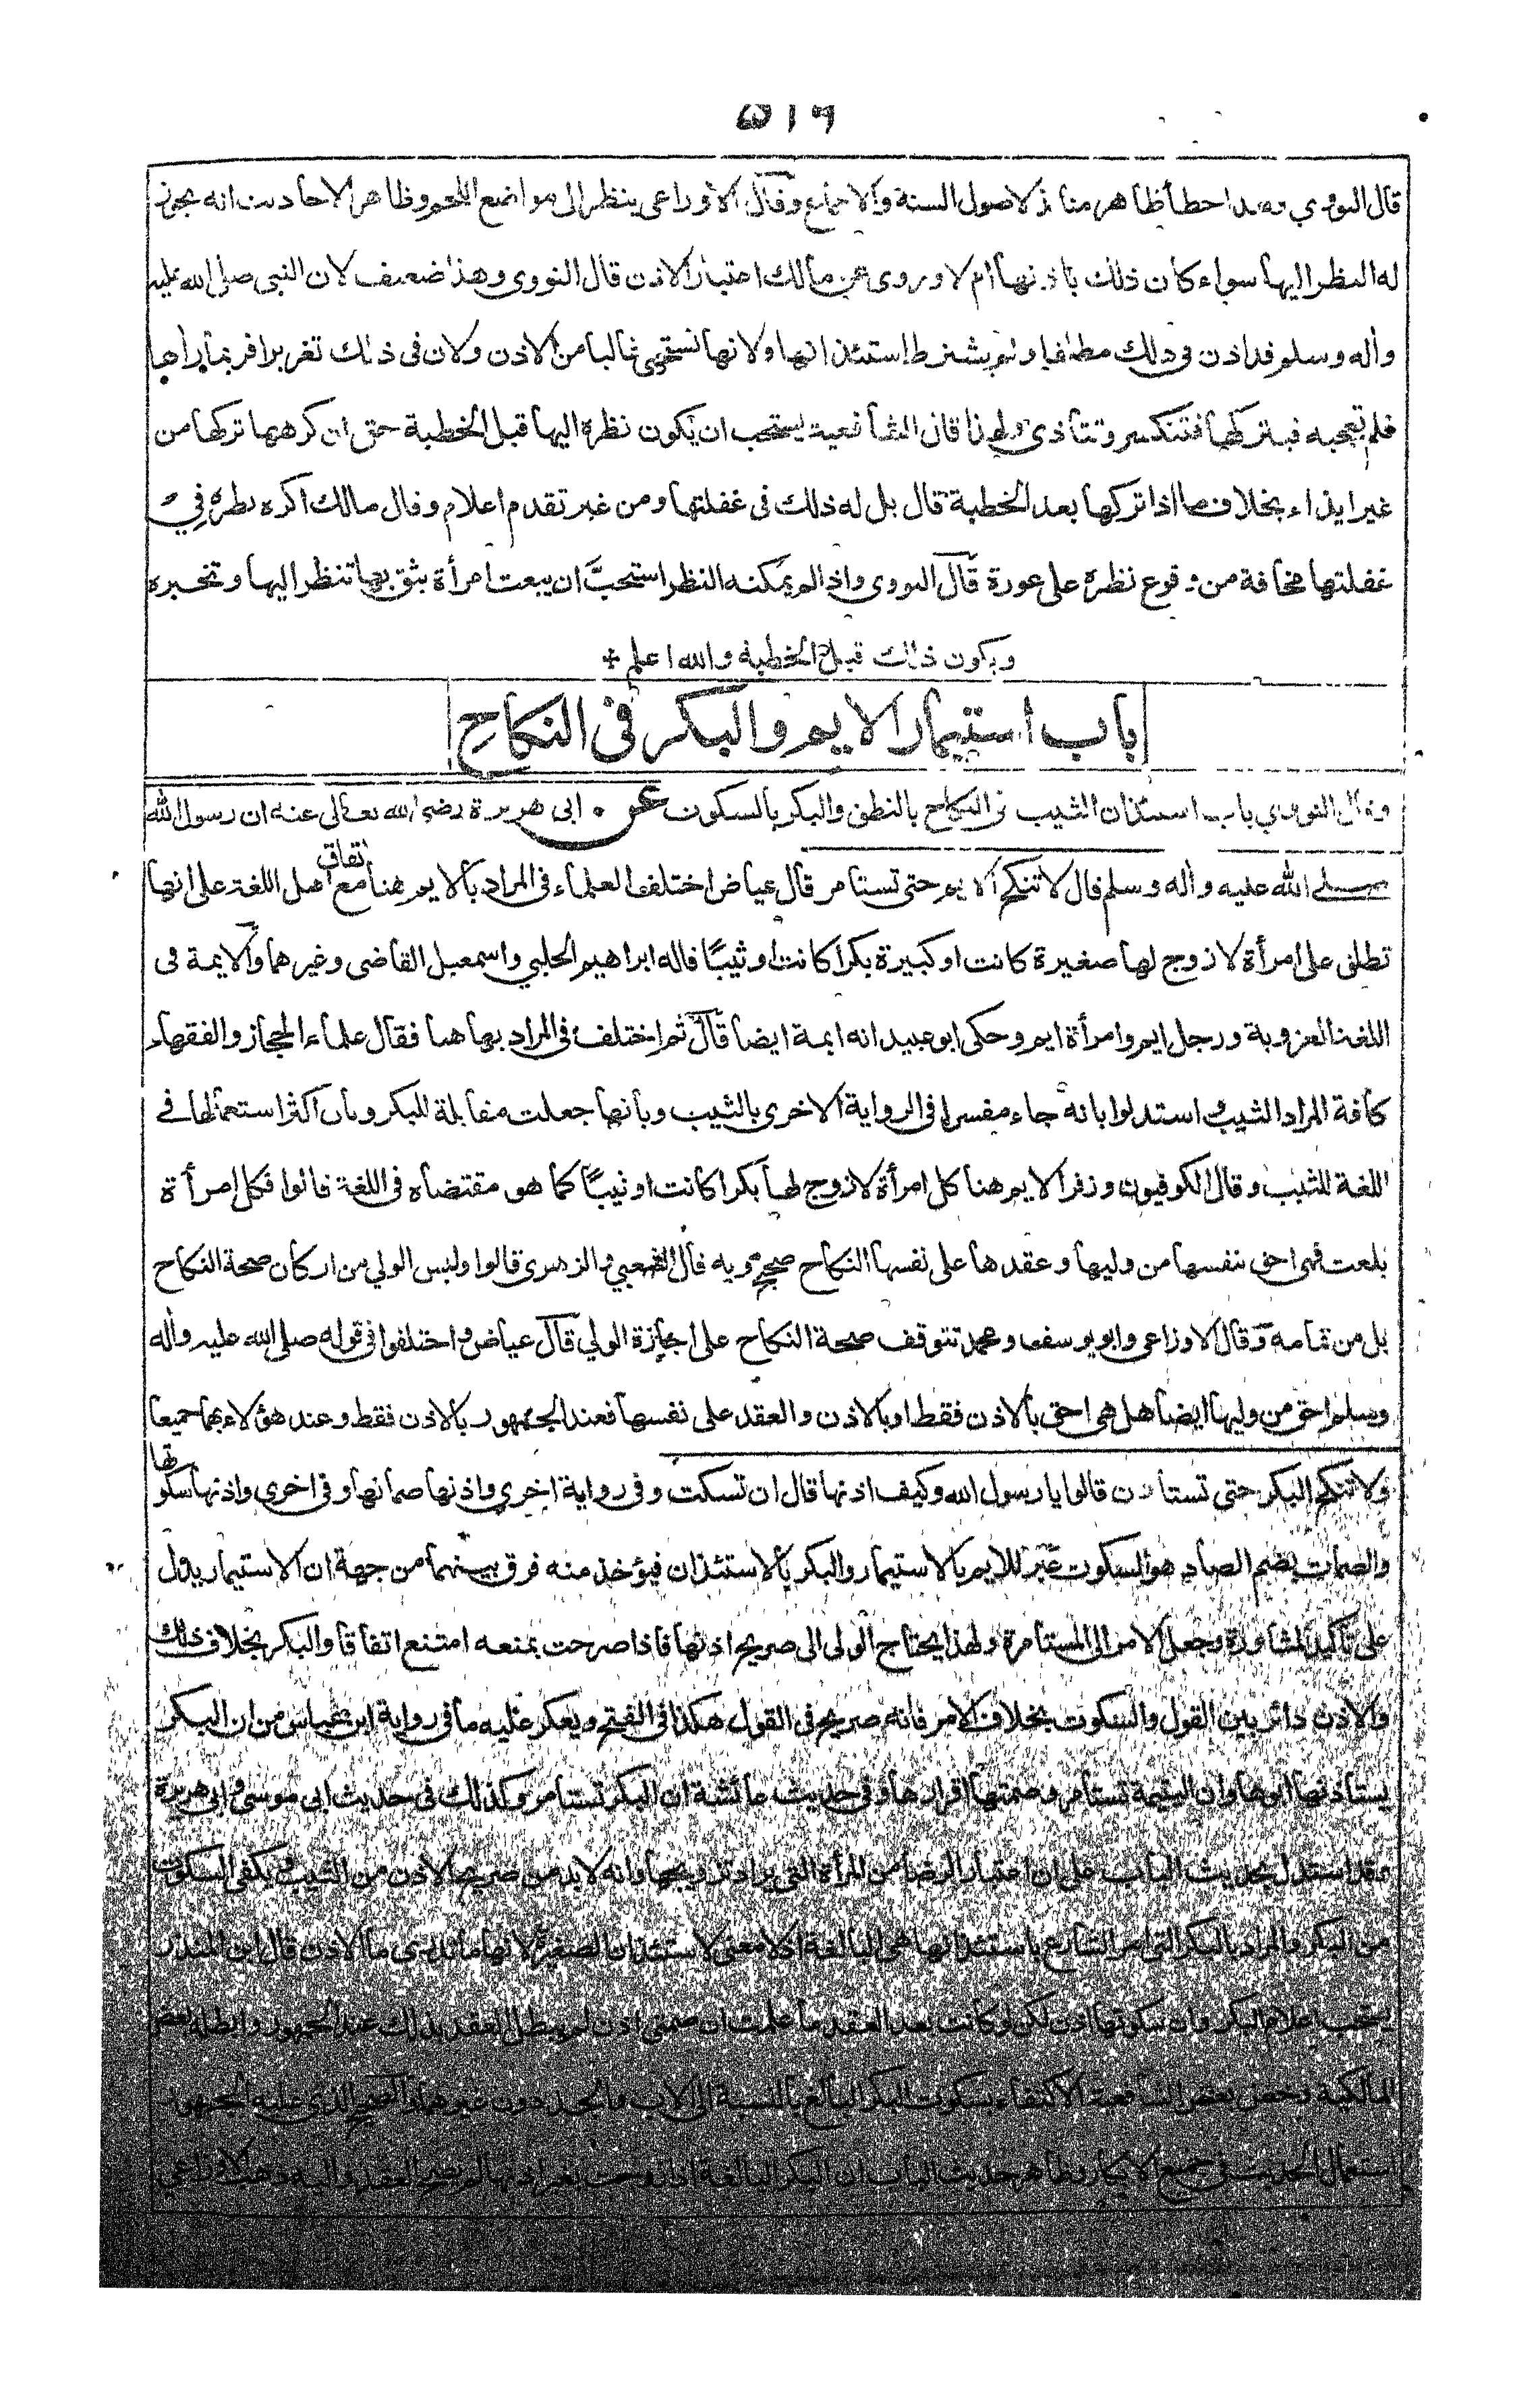 ٥١٩
قال النووي وهذا خطأ ظاهر منابذ لاصول السنة والاجماع وقال الاوزاعى ينظر الى مواضع اللحم وظاهر الاحاديث انه يجوز
له النظر اليها سواء كان ذلك باذنها ام لا وروى عن مالك اعتبار الاذن قال النووى وهذا ضعيف لان النبى صلى الله عليه
واله وسلم قد اذن فى ذلك مطلقا ولم يشترط استئذانها ولانها تستحيى غالبا من الاذن ولان فى ذلك تغريرا فربما راها
فلم تعجبه فيتركها فتنكسر وتتأذى ولهذا قال الشافعية يستحب ان يكون نظره اليها قبل الخطبة حتى ان كرهها تركها من
غير ايذاء بخلاف ما اذا تركها بعد الخطبة قال بل له ذلك فى غفلتها ومن غير تقدم اعلام وقال مالك اكره نظره في
غفلتها مخافة من وقوع نظره على عورة قال النووى واذا لم يمكنه النظر استحبَّ ان يبعث امرأة يثق بها تنظر اليها وتخبره
ويكون ذلك قبل الخطبة والله اعلم +
باب استيمار الايم والبكر فى النكاح
وقال النووي باب استئذان الثيب فى النكاح بالنطق والبكر بالسكوت عن ابى هريرة رضى الله تعالى عنه ان رسول الله
صلى الله عليه واله وسلم قال لا تنكح الايم حتى تستامر قال عياض اختلف العلماء فى المراد بالايم هنا مع اتفاق اهل اللغة على انها
تطلق على امرأة لا زوج لها صغيرة كانت او كبيرة بكرا كانت او ثيبًا قاله ابراهيم الحلبي واسمعيل القاضى وغيرهما والايمة فى
اللغة العزوبة ورجل ايم وامرأة ايم وحكى ابو عبيد انه ايمة ايضا قال ثم اختلف فى المراد بها هنا فقال علماء الحجاز والفقهاء
كافة المراد الثيب واستدلوا بانه جاء مفسرا فى الرواية الاخرى بالثيب وبانها جعلت مقابلة للبكر وبان اكثر استعمالها في
اللغة للثيب وقال الكوفيون وزفر الايم هنا كل امرأة لا زوج لها بكرا كانت او ثيبًا كما هو مقتضاه فى اللغة قالوا فكل امرأة
بلغت فهى احق بنفسها من وليها وعقدها على نفسها النكاح صحيح وبه قال الشعبي والزهرى قالوا وليس الولي من اركان صحة النكاح
بل من تمامه وقال الاوزاعى وابو يوسف ومحمد تتوقف صحة النكاح على اجازة الولي قال عياض واختلفوا فى قوله صلى الله عليه واله
وسلم احق من وليها ايضا هل هى احق بالاذن فقط او بالاذن والعقد على نفسها فعند الجمهور بالاذن فقط وعند هؤلاء بهما جميعا
ولا تنكح البكر حتى تستأذن قالوا يا رسول الله وكيف اذنها قال ان تسكت وفى رواية اخرى واذنها صماتها وفى اخرى واذنها سكوتها
والصمات بضم الصاد هو السكوت عبّر للايم بالاستيمار والبكر بالاستئذان فيؤخذ منه فرق بينهما من جهة ان الاستيمار يدل
على تأكيد المشاورة وجعل الامر الى المستامرة ولهذا يحتاج الولى الى صريح اذنها فاذا صرحت بمنعه امتنع اتفاقا والبكر بخلاف ذلك
والاذن دائر بين القول والسكوت بخلاف الامر فانه صريح فى القول هكذا فى الفتح ويعكر عليه ما فى رواية ابن عباس من ان البكر
يستاذنها ابوها وان اليتيمة تستأمر وصمتها اقرارها وفى حديث عائشة ان البكر تستامر وكذلك فى حديث ابى موسى وابى هريرة
وقد استدل بحديث الباب على ان اعتبار الرضا من المرأة التى يراد تزويجها وانه لا بد من صريح الاذن من الثيب ويكفى السكوت
من البكر والمراد بالبكر التى امر الشارع باستئذانها هى البالغة اذ لا معنى لاستئذان الصغيرة لانها ما تدرى ما الاذن قال ابن المنذر
يستحب اعلام البكر وان سكوتها اذن لكن لو كانت بعد العقد ما علمت ان صمتى اذن لم يبطل العقد بذلك عند الجمهور وابطله بعض
المالكية وخص بعض الشافعية الاكتفاء بسكوت البكر البالغ بالنسبة الى الاب والجد دون غيرهما والصحيح الذى عليه الجمهور
استعمال الحديث فى جميع الابكار وظاهر حديث الباب ان البكر البالغة اذا زوجت بغير اذنها لم يصح العقد واليه ذهب الاوزاعى